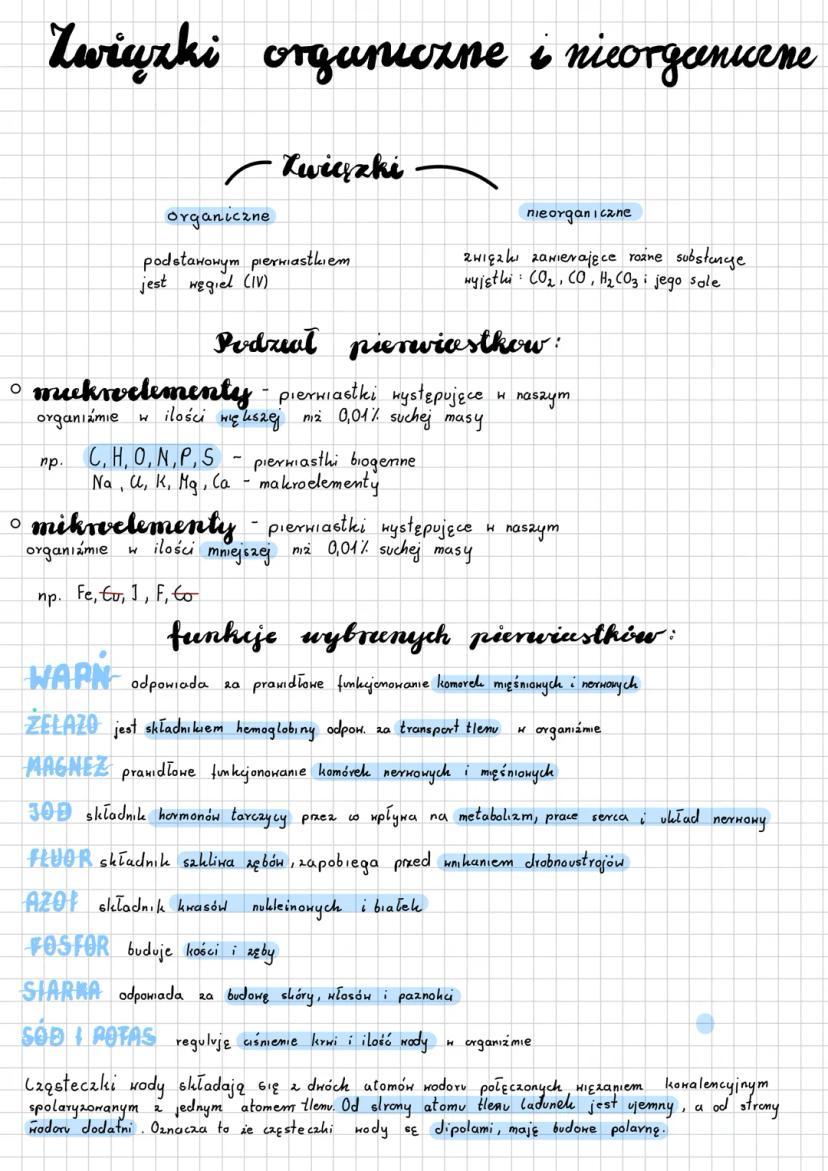 Związki organiczne i nieorganiczne
Związki
organiczne
nieorganiczne
podstawowym pierwiastkiem
jest węgiel (IV)
związki zawierające różne substancje
wyjątki : CO₂, CO, H₂CO₃ i jego sole
Podział pierwiastków:
makroelementy - pierwiastki występujące w naszym
organiźmie w ilości większej niż 0,01% suchej masy
np. C, H, O, N, P, S - pierwiastki biogenne
Na, Cl, K, Mg, Ca - makroelementy
mikroelementy - pierwiastki występujące w naszym
organiźmie w ilości mniejszej niż 0,01% suchej masy
np. Fe, Cu, I, F, Co
funkcje wybranych pierwiastków:
WAPŃ odpowiada za prawidłowe funkcjonowanie komórek mięśniowych i nerwowych
ŻELAZO jest składnikiem hemoglobiny odpow. za transport tlenu w organiźmie
MAGNEZ prawidłowe funkcjonowanie komórek nerwowych i mięśniowych
JOD składnik hormonów tarczycy przez co wpływa na metabolizm, prace serca i układ nerwowy
FLUOR składnik szkliwa zębów, zapobiega przed wnikaniem drobnoustrojów
AZOT składnik kwasów nukleinowych i białek
FOSFOR buduje kości i zęby
SIARKA odpowiada za budowę skóry, włosów i paznokci
SÓD I POTAS regulują ciśnienie krwi i ilość wody w organiźmie
Cząsteczki wody składają się z dwóch atomów wodoru połączonych wiązaniem kowalencyjnym
spolaryzowanym z jednym atomem tlenu. Od strony atomu tlenu ładunek jest ujemny, a od strony
wodoru dodatni. Oznacza to że cząsteczki wody są dipolami, mają budowe polarną.